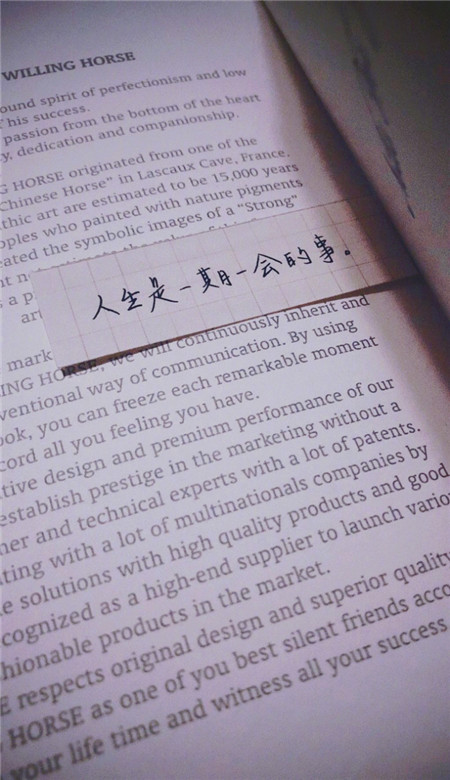 WILLING HORSE
ound spirit of perfectionism and low
his success.
passion from the bottom of the heart
y, dedication and companionship.
G HORSE originated from one of the
Chinese Horse" in Lascaux Cave, France.
thic art are estimated to be 15,000 years
oples who painted with nature pigments
eated the symbolic images of a "Strong"
人生是一期一会的事。
a p
art
mark
ING HORSE, we will continuously inherit and
ventional way of communication. By using
ook, you can freeze each remarkable moment
cord all you feeling you have.
tive design and premium performance of our
establish prestige in the marketing without a
ner and technical experts with a lot of patents.
ting with a lot of multinationals companies by
e solutions with high quality products and good
cognized as a high-end supplier to launch vario
hionable products in the market.
E respects original design and superior quality
HORSE as one of you best silent friends acco
your life time and witness all your success